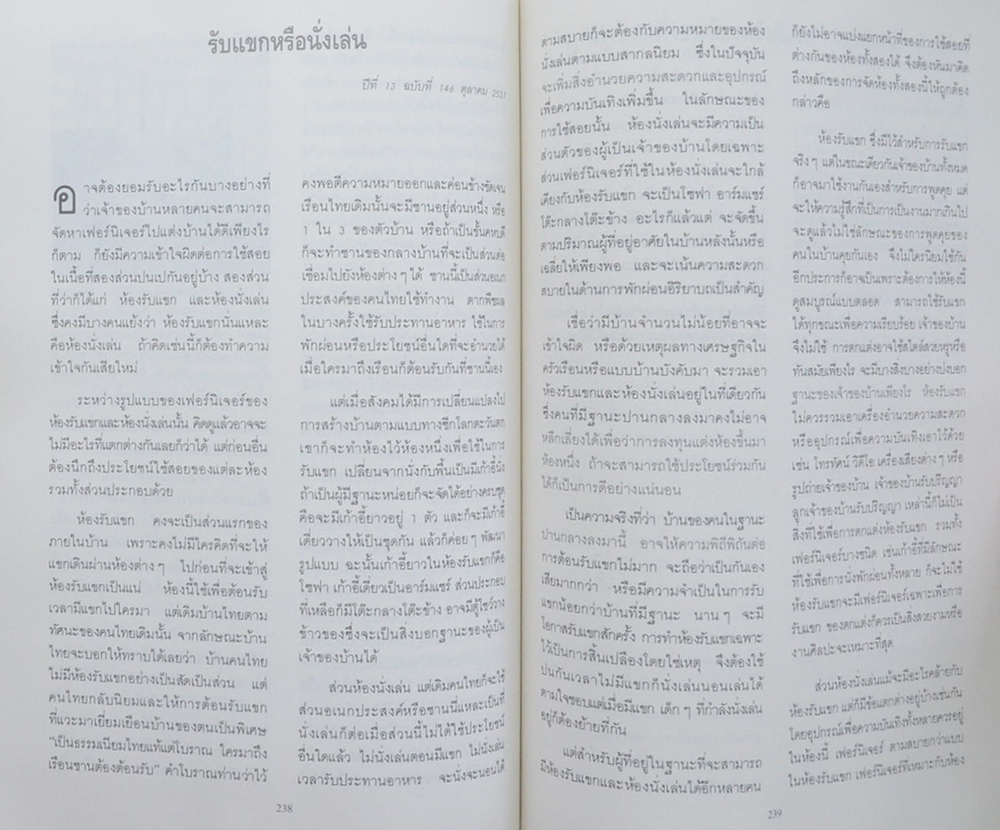 รับแขกหรือนั่งเล่น
ปีที่ 13 ฉบับที่ 146 ตุลาคม 2531
อาจต้องยอมรับอะไรกันบางอย่างที่
ว่าเจ้าของบ้านหลายคนจะสามารถ
จัดหาเฟอร์นิเจอร์ไปแต่งบ้านได้ดีเพียงไร
ก็ตาม ก็ยังมีความเข้าใจผิดต่อการใช้สอย
ในเนื้อที่สองส่วนปนเปกันอยู่บ้าง สองส่วน
ที่ว่าก็ได้แก่ ห้องรับแขก และห้องนั่งเล่น
ซึ่งคงมีบางคนแย้งว่า ห้องรับแขกนั่นแหละ
คือห้องนั่งเล่น ถ้าคิดเช่นนี้ก็ต้องทำความ
เข้าใจกันเสียใหม่
ระหว่างรูปแบบของเฟอร์นิเจอร์ของ
ห้องรับแขกและห้องนั่งเล่นนั้น คิดดูแล้วอาจจะ
ไม่มีอะไรที่แตกต่างกันเลยก็ว่าได้ แต่ก่อนอื่น
ต้องนึกถึงประโยชน์ใช้สอยของแต่ละห้อง
รวมทั้งส่วนประกอบด้วย
ห้องรับแขก คงจะเป็นส่วนแรกของ
ภายในบ้าน เพราะคงไม่มีใครคิดที่จะให้
แขกเดินผ่านห้องต่างๆ ไปก่อนที่จะเข้าสู่
ห้องรับแขกเป็นแน่ ห้องนี้ใช้เพื่อต้อนรับ
เวลามีแขกไปใครมา แต่เดิมบ้านไทยตาม
ทัศนะของคนไทยเดิมนั้น จากลักษณะบ้าน
ไทยจะบอกให้ทราบได้เลยว่า บ้านคนไทย
ไม่มีห้องรับแขกอย่างเป็นสัดเป็นส่วน แต่
คนไทยกลับนิยมและให้การต้อนรับแขก
ที่แวะมาเยี่ยมเยือนบ้านของตนเป็นพิเศษ
“เป็นธรรมเนียมไทยแท้แต่โบราณ ใครมาถึง
เรือนชานต้องต้อนรับ” คำโบราณท่านว่าไว้
คงพอตีความหมายออกและค่อนข้างชัดเจน
เรือนไทยเดิมนั้นจะมีชานอยู่ส่วนหนึ่ง หรือ
1 ใน 3 ของตัวบ้าน หรือถ้าเป็นชั้นคหบดี
ก็จะทำชานของกลางบ้านที่จะเป็นส่วนต่อ
เชื่อมไปยังห้องต่างๆ ได้ ชานนี้เป็นส่วนอเนก
ประสงค์ของคนไทยใช้ทำงาน ตากพืชผล
ในบางครั้งใช้รับประทานอาหาร ใช้ในการ
พักผ่อนหรือประโยชน์อื่นใดที่จะอำนวยได้
เมื่อใครมาถึงเรือนก็ต้อนรับกันที่ชานนี้เอง
แต่เมื่อสังคมได้มีการเปลี่ยนแปลงไป
การสร้างบ้านตามแบบทางซีกโลกตะวันตก
เขาก็จะทำห้องไว้ห้องหนึ่งเพื่อใช้ในการ
รับแขก เปลี่ยนจากนั่งกับพื้นเป็นมีเก้าอี้นั่ง
ถ้าเป็นผู้มีฐานะหน่อยก็จะจัดได้อย่างครบชุด
คือจะมีเก้าอี้ยาวอยู่ 1 ตัว และก็จะมีเก้าอี้
เดี่ยววางให้เป็นชุดกัน แล้วก็ค่อยๆ พัฒนา
รูปแบบ ฉะนั้นเก้าอี้ยาวในห้องรับแขกก็คือ
โซฟา เก้าอี้เดี่ยวเป็นอาร์มแชร์ ส่วนประกอบ
ที่เหลือก็มีโต๊ะกลางโต๊ะข้าง อาจมีตู้โชว์วาง
ข้าวของซึ่งจะเป็นสิ่งบอกฐานะของผู้เป็น
เจ้าของบ้านได้
ส่วนห้องนั่งเล่น แต่เดิมคนไทยก็จะใช้
ส่วนอเนกประสงค์หรือชานนี่แหละเป็นที่
นั่งเล่นก็ต่อเมื่อส่วนนี้ไม่ได้ใช้ประโยชน์
อื่นใดแล้ว ไม่นั่งเล่นตอนมีแขก ไม่นั่งเล่น
เวลารับประทานอาหาร จะนั่งจะนอนได้
238
ตามสบายก็จะต้องกับความหมายของห้อง
นั่งเล่นตามแบบสากลนิยม ซึ่งในปัจจุบัน
จะเพิ่มสิ่งอำนวยความสะดวกและอุปกรณ์
เพื่อความบันเทิงเพิ่มขึ้น ในลักษณะของ
การใช้สอยนั้น ห้องนั่งเล่นจะมีความเป็น
ส่วนตัวของผู้เป็นเจ้าของบ้านโดยเฉพาะ
ส่วนเฟอร์นิเจอร์ที่ใช้ในห้องนั่งเล่นจะใกล้
เคียงกับห้องรับแขก จะเป็นโซฟา อาร์มแชร์
โต๊ะกลางโต๊ะข้าง อะไรก็แล้วแต่ จะจัดขึ้น
ตามปริมาณผู้ที่อยู่อาศัยในบ้านหลังนั้นหรือ
เฉลี่ยให้เพียงพอ และจะเน้นความสะดวก
สบายในด้านการพักผ่อนอิริยาบถเป็นสำคัญ
เชื่อว่ามีบ้านจำนวนไม่น้อยที่อาจจะ
เข้าใจผิด หรือด้วยเหตุผลทางเศรษฐกิจใน
ครัวเรือนหรือแบบบ้านบังคับมา จะรวมเอา
ห้องรับแขกและห้องนั่งเล่นอยู่ในที่เดียวกัน
ซึ่งคนที่มีฐานะปานกลางลงมาคงไม่อาจ
หลีกเลี่ยงได้เพื่อว่าการลงทุนแต่งห้องขึ้นมา
ห้องหนึ่ง ถ้าจะสามารถใช้ประโยชน์ร่วมกัน
ได้ก็เป็นการดีอย่างแน่นอน
เป็นความจริงที่ว่า บ้านของคนในฐานะ
ปานกลางลงมานี้ อาจให้ความพิถีพิถันต่อ
การต้อนรับแขกไม่มาก จะถือว่าเป็นกันเอง
เสียมากกว่า หรือมีความจำเป็นในการรับ
แขกน้อยกว่าบ้านที่มีฐานะ นานๆ จะมี
โอกาสรับแขกสักครั้ง การทำห้องรับแขกเฉพาะ
ไว้เป็นการสิ้นเปลืองโดยใช่เหตุ จึงต้องใช้
ปนกันเวลาไม่มีแขกก็นั่งเล่นนอนเล่นได้
ตามใจชอบแต่เมื่อมีแขก เด็กๆ ที่กำลังนั่งเล่น
อยู่ก็ต้องย้ายที่กัน
แต่สำหรับผู้ที่อยู่ในฐานะที่จะสามารถ
มีห้องรับแขกและห้องนั่งเล่นได้อีกหลายคน
ก็ยังไม่อาจแบ่งแยกหน้าที่ของการใช้สอยที่
ต่างกันของห้องทั้งสองได้ จึงต้องหันมาคิด
ถึงหลักของการจัดห้องทั้งสองนี้ให้ถูกต้อง
กล่าวคือ
ห้องรับแขก ซึ่งมีไว้สำหรับการรับแขก
จริงๆ แต่ในขณะเดียวกันเจ้าของบ้านทั้งหมด
ก็อาจมาใช้งานกันเองสำหรับการพูดคุย แต่
จะให้ความรู้สึกที่เป็นการเป็นงานมากเกินไป
จะดูแล้วไม่ใช่ลักษณะของการพูดคุยของ
คนในบ้านคุยกันเอง จึงไม่ใครนิยมใช้กัน
อีกประการก็อาจเป็นเพราะต้องการให้ห้องนี้
ดูสมบูรณ์แบบตลอด สามารถใช้รับแขก
ได้ทุกขณะเพื่อความเรียบร้อย เจ้าของบ้าน
จึงไม่ใช้ การตกแต่งอาจใช้สไตล์สวยหรูหรือ
ทันสมัยเพียงไร จะมีบางสิ่งบางอย่างบ่งบอก
ฐานะของเจ้าของบ้านเพียงไร ห้องรับแขก
ไม่ควรรวมเอาเครื่องอำนวยความสะดวก
หรืออุปกรณ์เพื่อความบันเทิงเอาไว้ด้วย
เช่น โทรทัศน์ วิดีโอ เครื่องเสียงต่างๆ หรือ
รูปถ่ายเจ้าของบ้าน เจ้าของบ้านรับปริญญา
ลูกเจ้าของบ้านรับปริญญา เหล่านี้ก็ไม่เป็น
สิ่งที่ใช้เพื่อการตกแต่งห้องรับแขก รวมทั้ง
เฟอร์นิเจอร์บางชนิด เช่นเก้าอี้ที่มีลักษณะ
ที่ใช้เพื่อการนั่งพักผ่อนทั้งหลาย ก็จะไม่ใช้
ห้องรับแขกจะมีเฟอร์นิเจอร์เฉพาะเพื่อการ
รับแขก ของตกแต่งก็ควรเป็นสิ่งสวยงามหรือ
งานศิลปะจะเหมาะที่สุด
ส่วนห้องนั่งเล่นแม้จะมีอะไรคล้ายกับ
ห้องรับแขก แต่ก็มีข้อแตกต่างอยู่บ้างเช่นกัน
โดยอุปกรณ์เพื่อความบันเทิงทั้งหลายควรอยู่
ในห้องนี้ เฟอร์นิเจอร์ ตามสบายกว่าแบบ
ในห้องรับแขก เฟอร์นิเจอร์ที่เหมาะกับห้อง
239